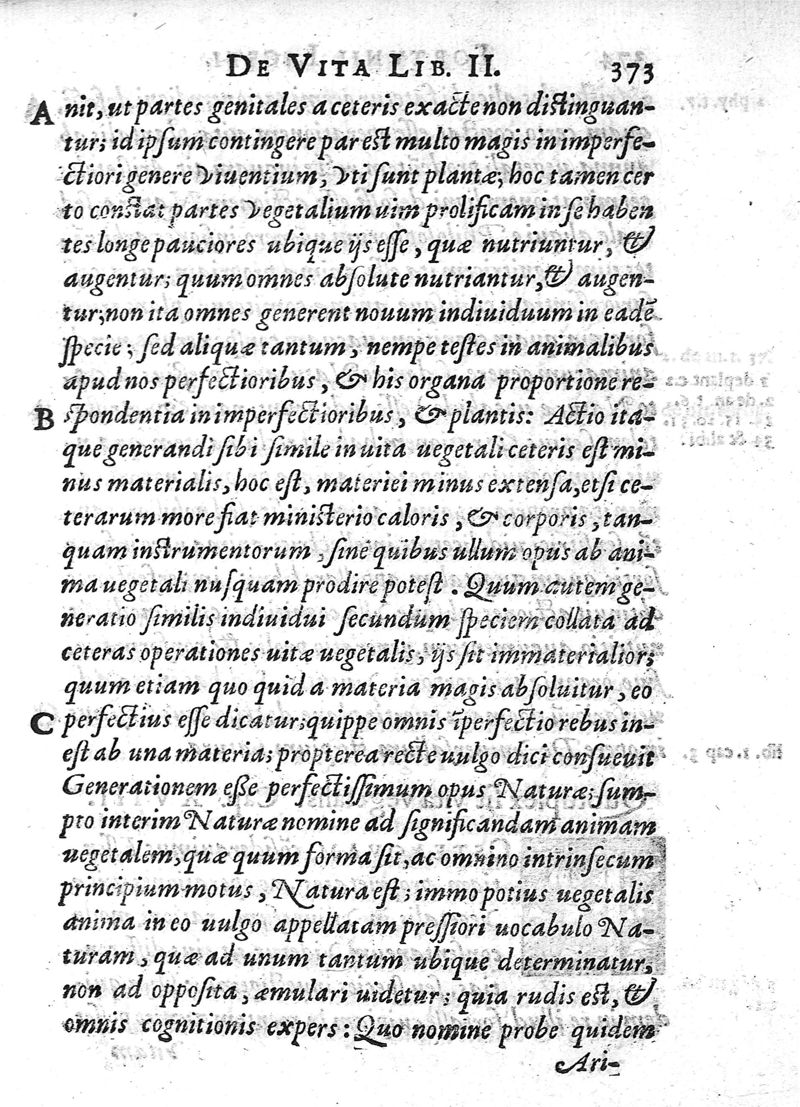 DE VITA LIB. II. 373
A nit, ut partes genitales a ceteris exacte non distinguan-
tur; id ipsum contingere par est multo magis in imperfe-
ctiori genere viventium, vti sunt plantæ; hoc tamen cer
to constat partes vegetalium uim prolificam in se haben
tes longe pauciores ubique ijs esse, quæ nutriuntur, &
augentur; quum omnes absolute nutriantur, & augen-
tur; non ita omnes generent nouum indiuiduum in eadē
specie; sed aliquæ tantum, nempe testes in animalibus
apud nos perfectioribus, & his organa proportione re-
B spondentia in imperfectioribus, & plantis: Actio ita-
que generandi sibi simile in uita uegetali ceteris est mi-
nus materialis, hoc est, materiei minus extensa, etsi ce-
terarum more fiat ministerio caloris, & corporis, tan-
quam instrumentorum, sine quibus ullum opus ab ani-
ma uegetali nusquam prodire potest. Quum autem ge-
neratio similis indiuidui secundum speciem collata ad
ceteras operationes uitæ uegetalis, ijs sit immaterialior;
quum etiam quo quid a materia magis absoluitur, eo
C perfectius esse dicatur; quippe omnis īperfectio rebus in-
est ab una materia; propterea recte uulgo dici consueuit
Generationem esse perfectissimum opus Naturæ; sum-
pto interim Naturæ nomine ad significandam animam
uegetalem, quæ quum forma sit, ac omnino intrinsecum
principium motus, Natura est; immo potius uegetalis
anima in eo uulgo appellatam pressiori uocabulo Na-
turam, quæ ad unum tantum ubique determinatur,
non ad opposita, æmulari uidetur; quia rudis est, &
omnis cognitionis expers: Quo nomine probe quidem
Ari-